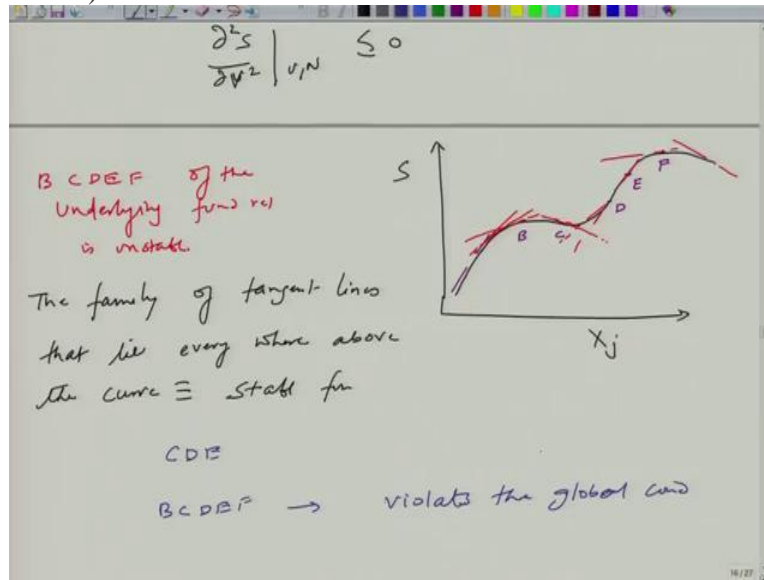 ∂²S/∂V² | U,N ≤ 0
B CDEF of the
underlying fund rel
is unstable.
S
B
C
D
E
F
Xj
The family of tangent lines
that lie every where above
the curve ≡ Stabl fun
CDE
BCDEF → violats the global cond
16/27